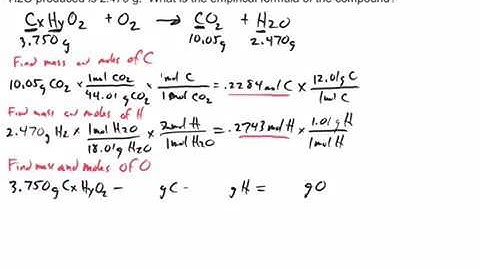 H2O produced is 2.470 g. What is the empirical formula of the compound?
CxHyO2 + O2 → CO2 + H2O
3.750g 10.05g 2.470g
Find mass and moles of C
10.05g CO2 × 1mol CO2 / 44.01 g CO2 × 1mol C / 1mol CO2 = .2284 mol C × 12.01g C / 1mol C
Find mass and moles of H
2.470g H2 × 1mol H2O / 18.01g H2O × 2mol H / 1mol H2O = .2743 mol H × 1.01g H / 1mol H
Find mass and moles of O
3.750g CxHyO2 - gC - gH = gO